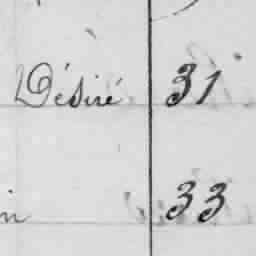 Désiré 31
in 33